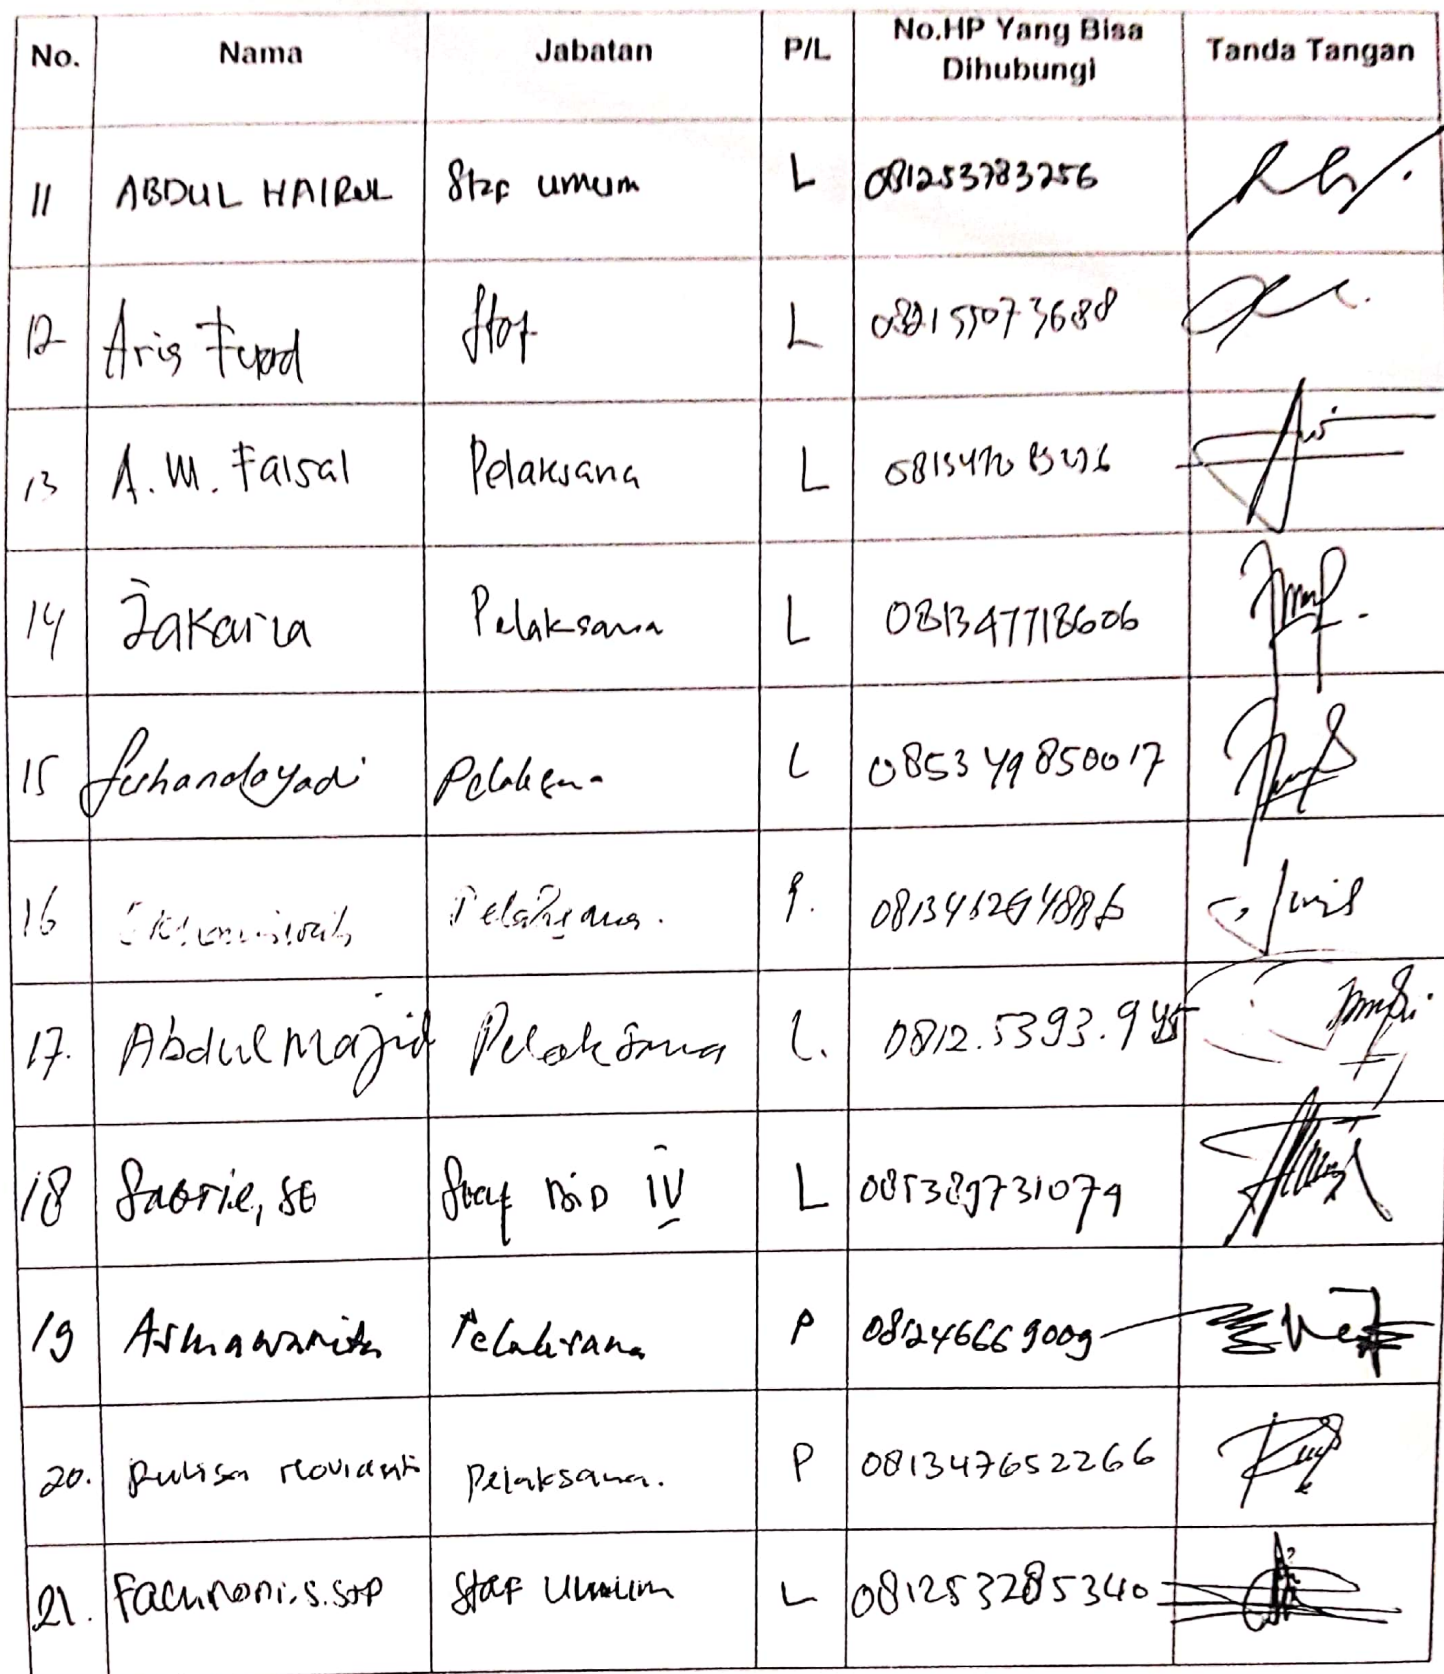 No. Nama Jabatan P/L No.HP Yang Bisa Dihubungi Tanda Tangan
11 ABDUL HAIRUL Staf umum L 081253783256
12 Aris Fuad Staf L 082155073688
13 A.M. Faisal Pelaksana L
14 Zakaria Pelaksana L 081347718606
15 Suhandoyadi Pelaksana L 085349850017
16 Pelaksana. P.
17. Abdul Majid Pelaksana L. 0812.5393.945
18 Sabrie, SE Staf BiD IV L 085389731079
19 Asmawanita Pelaksana P 081246669009
20. Novianti Pelaksana. P 081347652266
21. Fachroni.S.STP Staf Umum L 081253285340